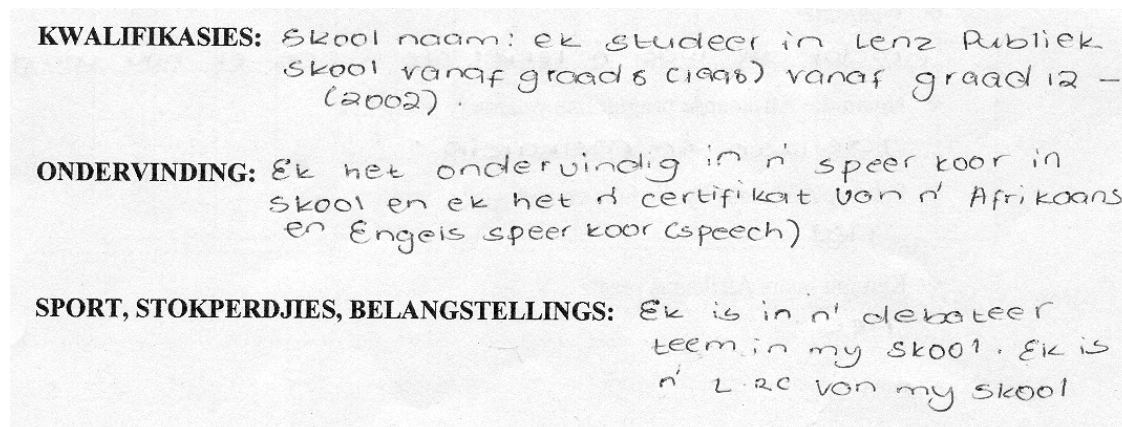 KWALIFIKASIES: Skool naam: ek studeer in Lenz Publiek
Skool vanaf graad 8 (1998) vanaf graad 12 -
(2002).
ONDERVINDING: Ek het ondervindig in n' speer koor in
Skool en ek het n' certifikat von n' Afrikaans
en Engels speer koor (speech)
SPORT, STOKPERDJIES, BELANGSTELLINGS: Ek is in n' debateer
teem in my skool. Ek is
n' L RC von my skool